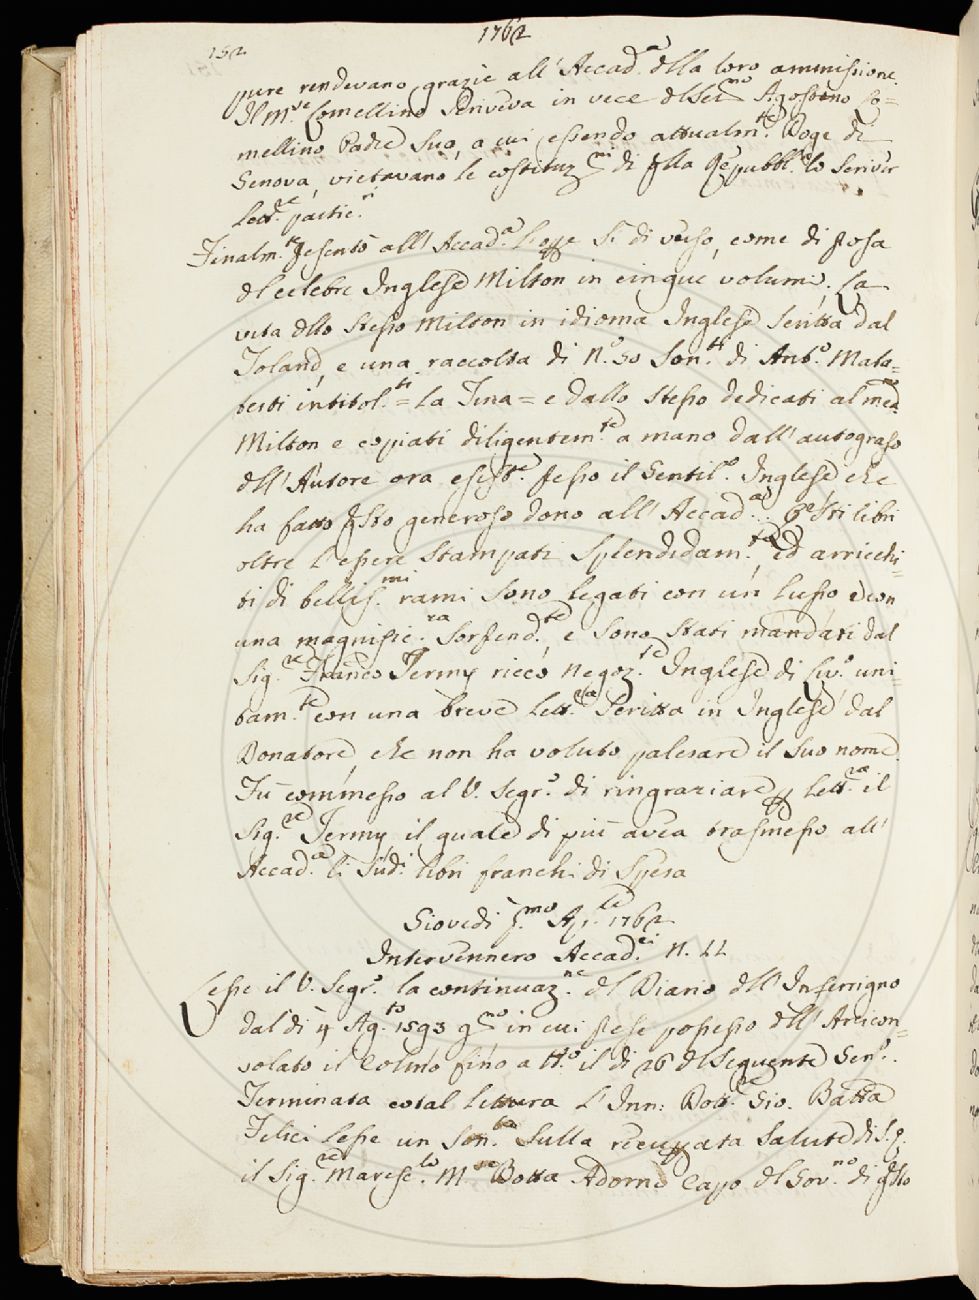 152
1762
pure rendevano grazie all' Accad.ª della loro ammissione.
Il M.se Lomellino scriveva in vece del Ser.mo Agostino Lo=
mellino Padre suo, a cui essendo attualm.te Doge di
Genova, vietavano le costituz.ni di qlla Repubbl.ca lo scriver
lett.re partic.ri
Finalm.te psentò all' Accad.ª l'opre sì di verso, come di prosa
del celebre Inglese Milton in cinque volumi. La
vita dello stesso Milton in idioma Inglese scritta dal
Toland, e una raccolta di N.º 50 Son.tti di Ant.º Mala=
testi intitol.ti = La Tina = e dallo stesso dedicati al med.mo
Milton e copiati diligentem.te a mano dall' autografo
dell' Autore ora esist.e psso il Gentil.º Inglese che
ha fatto qsto generoso dono all' Accad.ª. Qesti libri
oltre l'essere stampati splendidam.te, ed arricchi=
ti di bellis.mi rami sono legati con un lusso e con
una magnific.za sorprend.te, e sono stati mandati dal
Sig.re Franc.o Jermy ricco negoz.te Inglese di Liv.º uni=
tam.te con una breve lett.ra scritta in Inglese dal
Donatore, che non ha voluto palesare il suo nome.
Fu commesso al V. Segr.º di ringraziare p lett.ra il
Sig.re Jermy il quale di più avea trasmesso all'
Accad.ª li sud.i libri franchi di spesa
Giovedì p.mo Ap.le 1762
Intervennero Accad.ci N. 22
Lesse il V. Segr.º la continuaz.ne del Diario dell' Inferrigno
dal dì 4 Ag.to 1593 gno in cui prese possesso dell' Arcicon=
solato il Colmo fino a tt.º il dì 26 del seguente Gen.º.
Terminata cotal lettura l'Inn: Dott.re Gio. Batta
Felici lesse un Son.to sulla recuprata salute di S. E.
il Sig.re Maresc.lo M.se Botta Adorno Capo del Gov.no di qsto